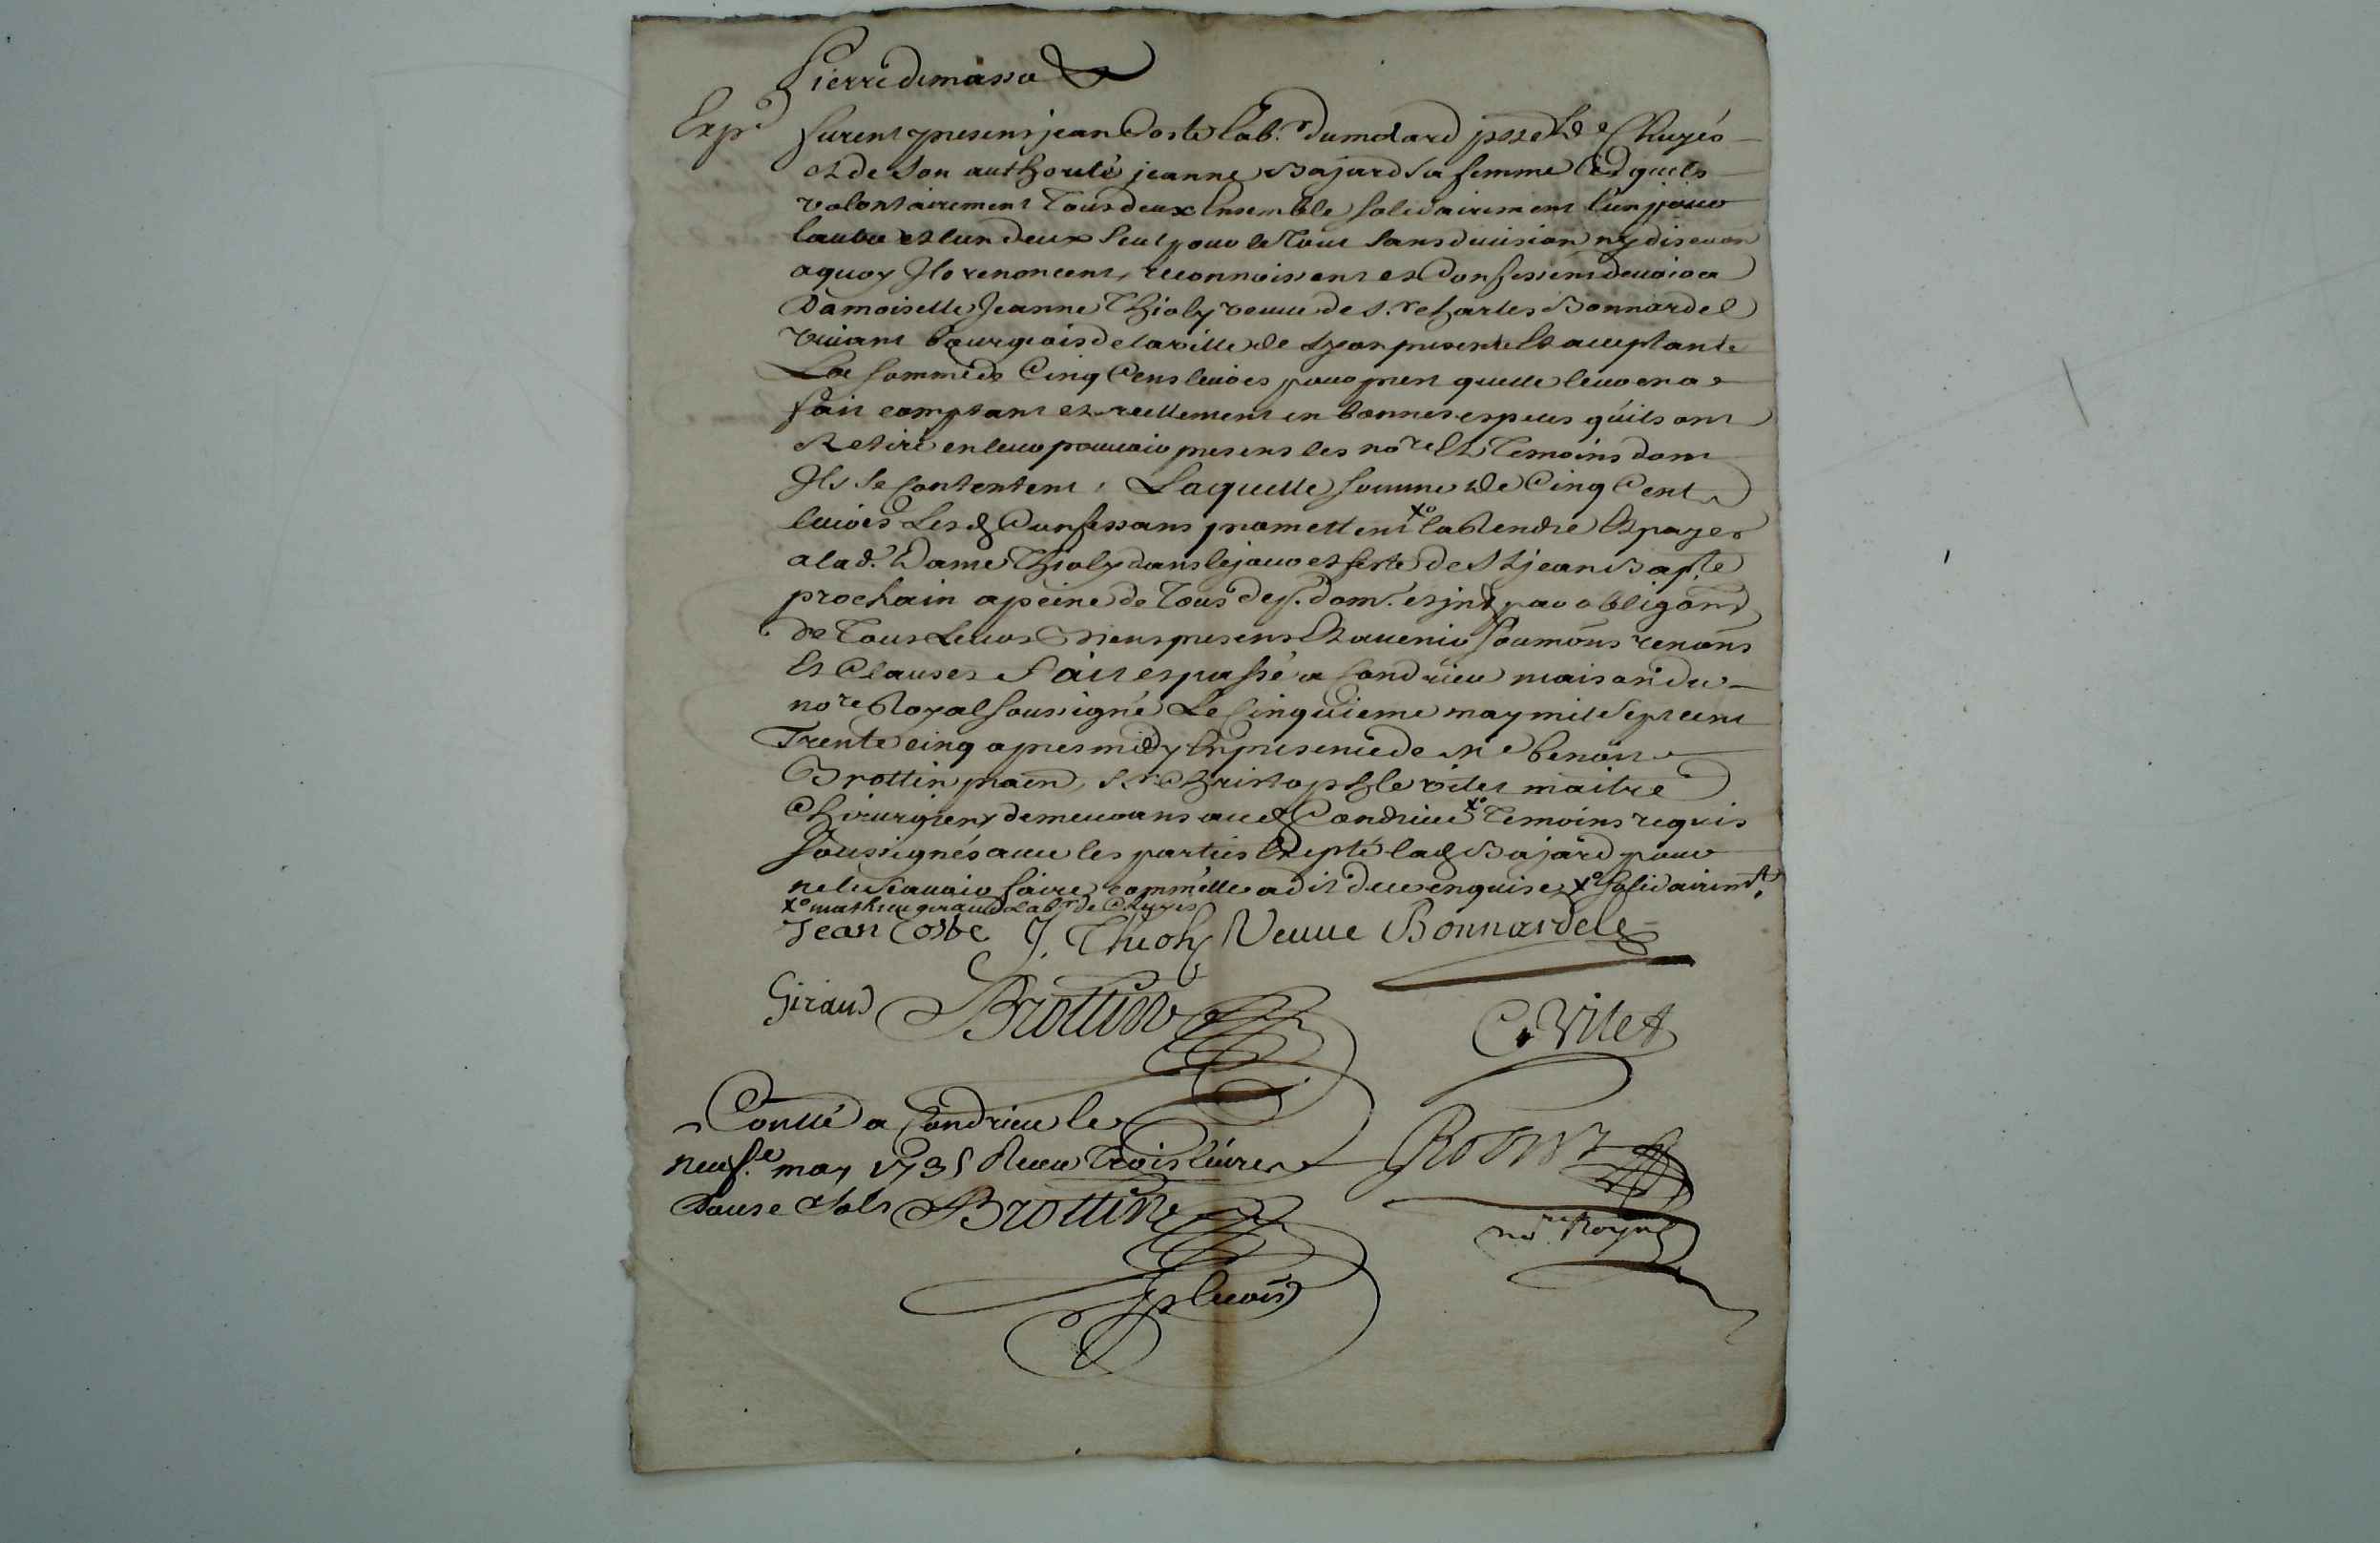 Pierre demassa
Exp.d furent presens jean Coste lab.r du molard psse de Chuyés
et de son authorité jeanne Bajard sa femme lesd quels
volontairement tous deux Ensemble solidairement l'un pour
lautre et lun deux seul pour le tout sans division ny discution
a quoy Ils renoncent, reconnoissent et Confessent devoir a
Damoiselle Jeanne Thioly veuve de s.r Charles Bonnardel
vivant bourgeois de la ville de Lyon presente Et acceptante
La somme de Cinq Cens livres pour prest quelle leur en a
fait comptant et reellement en bonnes especes quils ont
Retiré en leur pouvoir presens les no.re Et Temoins dont
Ils se Contentent, Laquelle somme de Cinq Cent
livres Lesd Confessans promettent xo la Rendre Et payer
a lad. Dame Thioly dans le jour et feste de St jean Bapte
prochain a peine de Tous dep. dom. et jnt par obligaon
de Tous Leurs Biens presens Et avenir soumons renons
Et Clauses Fait et passé a Condrieu maison du
no.re Royal soussigné Le Cinquieme may mil sept cent
Trente cinq apres midy En presence de Me benoit
Brottin praen, Sr Christophle vitet maitre
Chirurgien, demeurans aud Condrieu xo Temoins requis
soussignés avec les parties Excepté lad Bajard pour
ne le sçavoir faire comm'elle a dit de ce enquise, xo solidairemt.
xo mathieu giraud Labr de Chuyes
Jean Coste J. Thioly Veuve Bonnardel
Giraud Brottin
C. Vitet
Conllé a Condrieu le
neuf.e may 1735 Receu Trois livres
Douse sols Brottin
no.re Royal